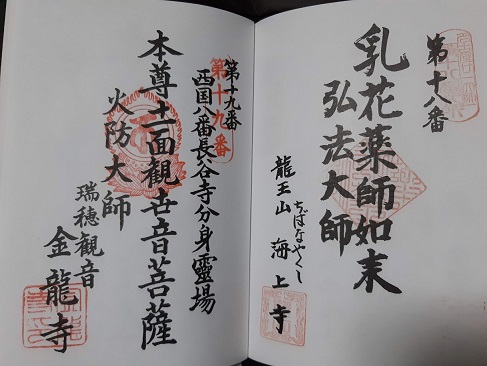 第十八番
乳花薬師如来
弘法大師
ちばなやくし
龍王山 海上寺
第十九番
第十九番
西国八番長谷寺分身霊場
本尊十一面観世音菩薩
火防大師
瑞穂観音
金龍寺